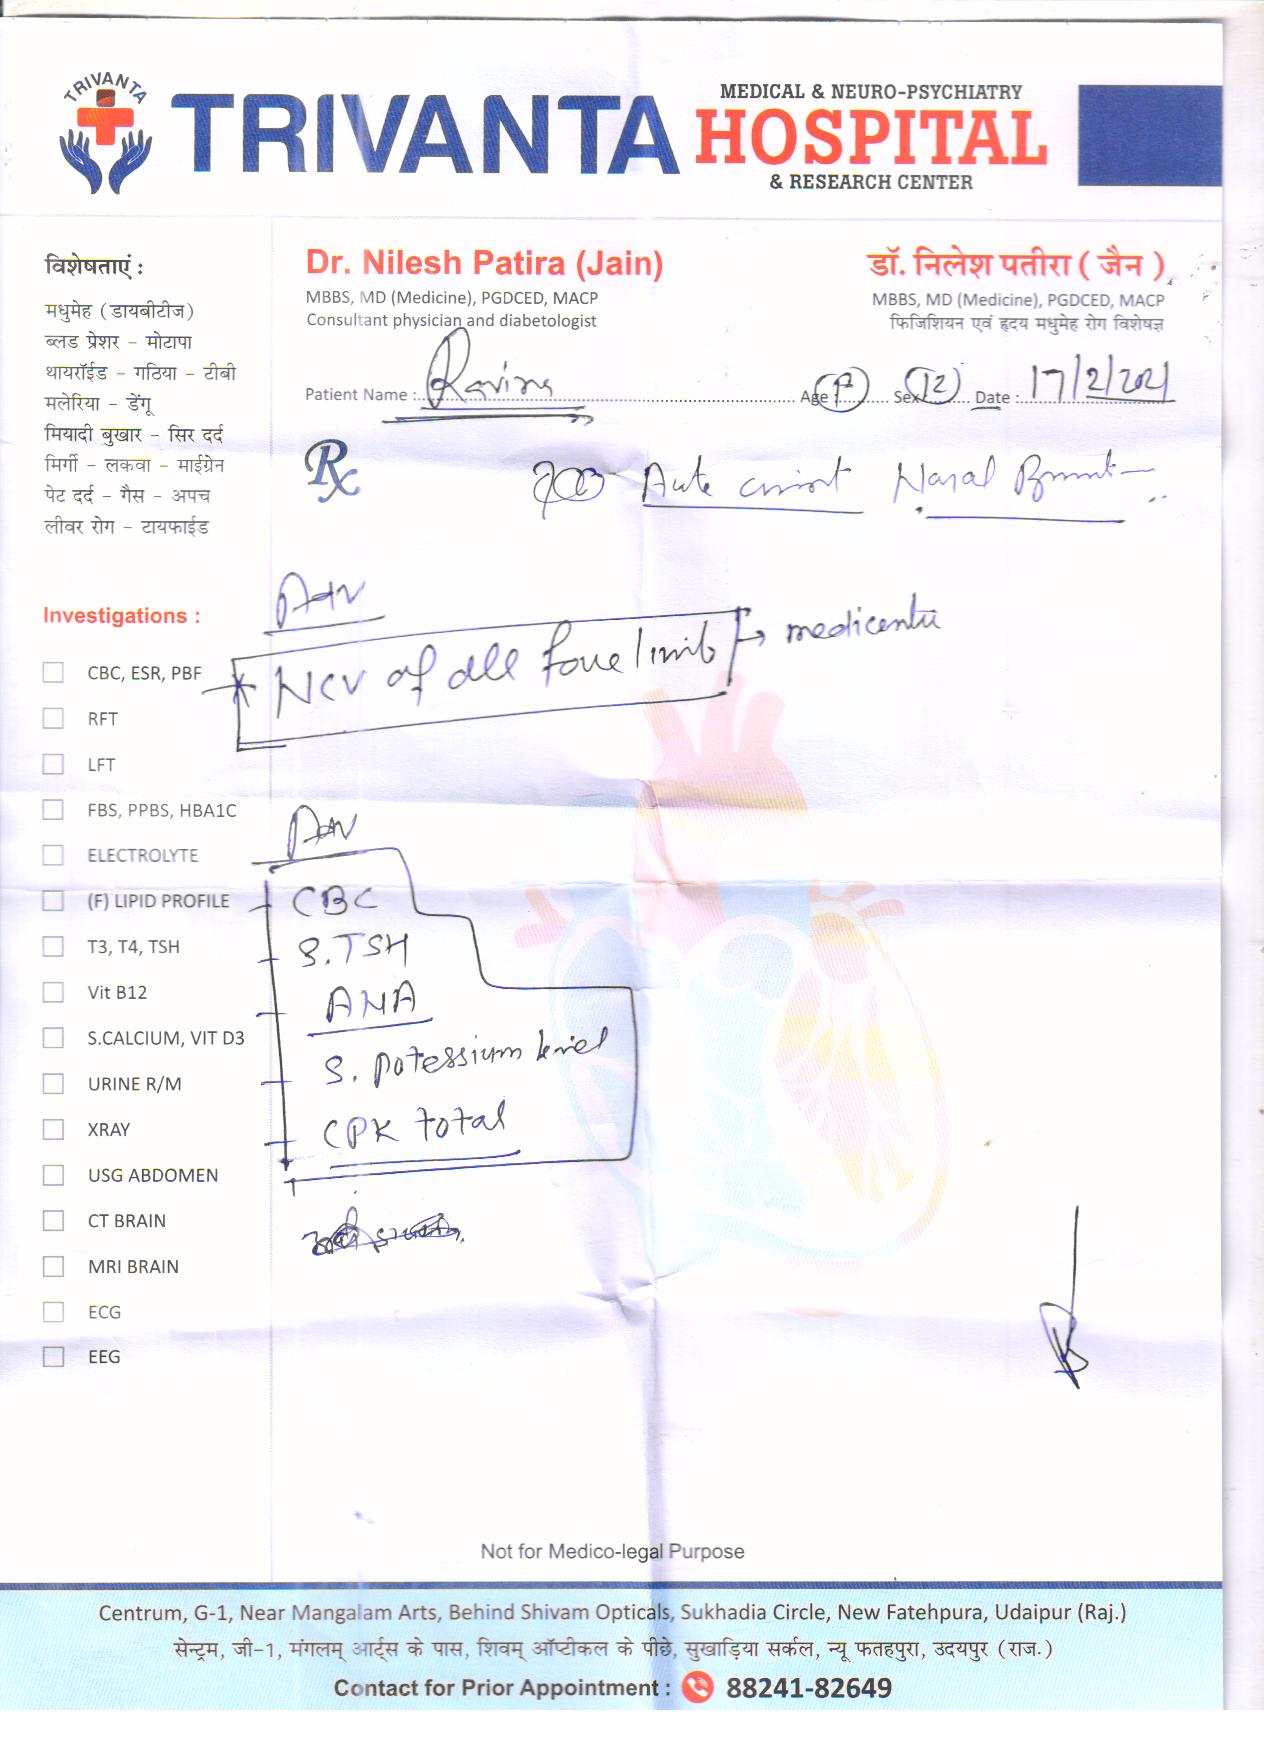 TRIVANTA
TRIVANTA MEDICAL & NEURO-PSYCHIATRY
HOSPITAL
& RESEARCH CENTER
विशेषताएं :
मधुमेह (डायबीटीज)
ब्लड प्रेशर - मोटापा
थायरॉईड - गठिया - टीबी
मलेरिया - डेंगू
मियादी बुखार - सिर दर्द
मिर्गी - लकवा - माईग्रेन
पेट दर्द - गैस - अपच
लीवर रोग - टायफाईड
Dr. Nilesh Patira (Jain)
MBBS, MD (Medicine), PGDCED, MACP
Consultant physician and diabetologist
डॉ. निलेश पतीरा ( जैन )
MBBS, MD (Medicine), PGDCED, MACP
फिजिशियन एवं हृदय मधुमेह रोग विशेषज्ञ
Patient Name : Age : Sex Date : 17/2/2021
Rx
Nasal
Adv
NCV of all four limb → medicentre
Adv
CBC
S. TSH
ANA
S. potessium level
CPK total
Investigations :
CBC, ESR, PBF
RFT
LFT
FBS, PPBS, HBA1C
ELECTROLYTE
(F) LIPID PROFILE
T3, T4, TSH
Vit B12
S.CALCIUM, VIT D3
URINE R/M
XRAY
USG ABDOMEN
CT BRAIN
MRI BRAIN
ECG
EEG
Not for Medico-legal Purpose
Centrum, G-1, Near Mangalam Arts, Behind Shivam Opticals, Sukhadia Circle, New Fatehpura, Udaipur (Raj.)
सेन्ट्रम, जी-1, मंगलम् आर्ट्स के पास, शिवम् ऑप्टीकल के पीछे, सुखाड़िया सर्कल, न्यू फतहपुरा, उदयपुर (राज.)
Contact for Prior Appointment : 88241-82649